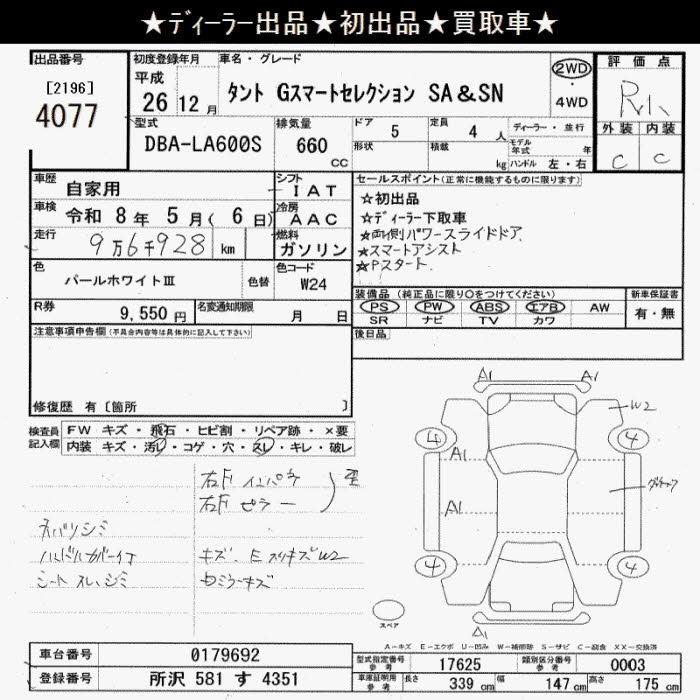 ★ディーラー出品★初出品★買取車★
出品番号
[2196]
4077
初度登録年月
平成
26年12月
車名・グレード
タント Gスマートセレクション SA&SN
2WD
・
4WD
評価点
外装 内装
C C
型式
DBA-LA600S
排気量
660
CC
ドア 5
形状
定員 4人
積載 kg
ディーラー・並行
モデル年式 年
ハンドル 左・右
車歴
自家用
シフト
IAT
車検
令和 8年 5月( 6日)
冷房
AAC
走行
9万6千928 km
燃料
ガソリン
色
パールホワイトⅢ
色替
色コード
W24
R券
9,550円
名変通知期限
月 日
セールスポイント(正常に機能するものに限ります)
★初出品
★ディーラー下取車
★両側パワースライドドア
★スマートアシスト
★Pスタート
装備品(純正品に限り○をつけてください)
PS PW ABS エアB AW
SR ナビ TV カワ
新車保証書
有・無
後日品
注意事項申告欄(不具合内容等は具体的に記入して下さい)
修復歴 有〔箇所 〕
検査員記入欄
FW キズ・飛石・ヒビ割・リペア跡・×要
内装 キズ・汚レ・コゲ・穴・スレ・キレ・破レ
右F インパネ
右F ピラー
ネバリシミ
ハンドルカバー付
シート スレ、シミ
キズ、E スリキズW2
A1 A1
W2
4 4
A1
A1
4 4
A1
スペア
A-キズ E-エクボ U-凹み W-補修跡 S-サビ C-腐食 XX-交換済
車台番号
0179692
登録番号
所沢 581 す 4351
型式指定番号
参考
17625
類別区分番号
参考
0003
車庫証明用
参考
長さ 339 cm 幅 147 cm 高さ 175 cm